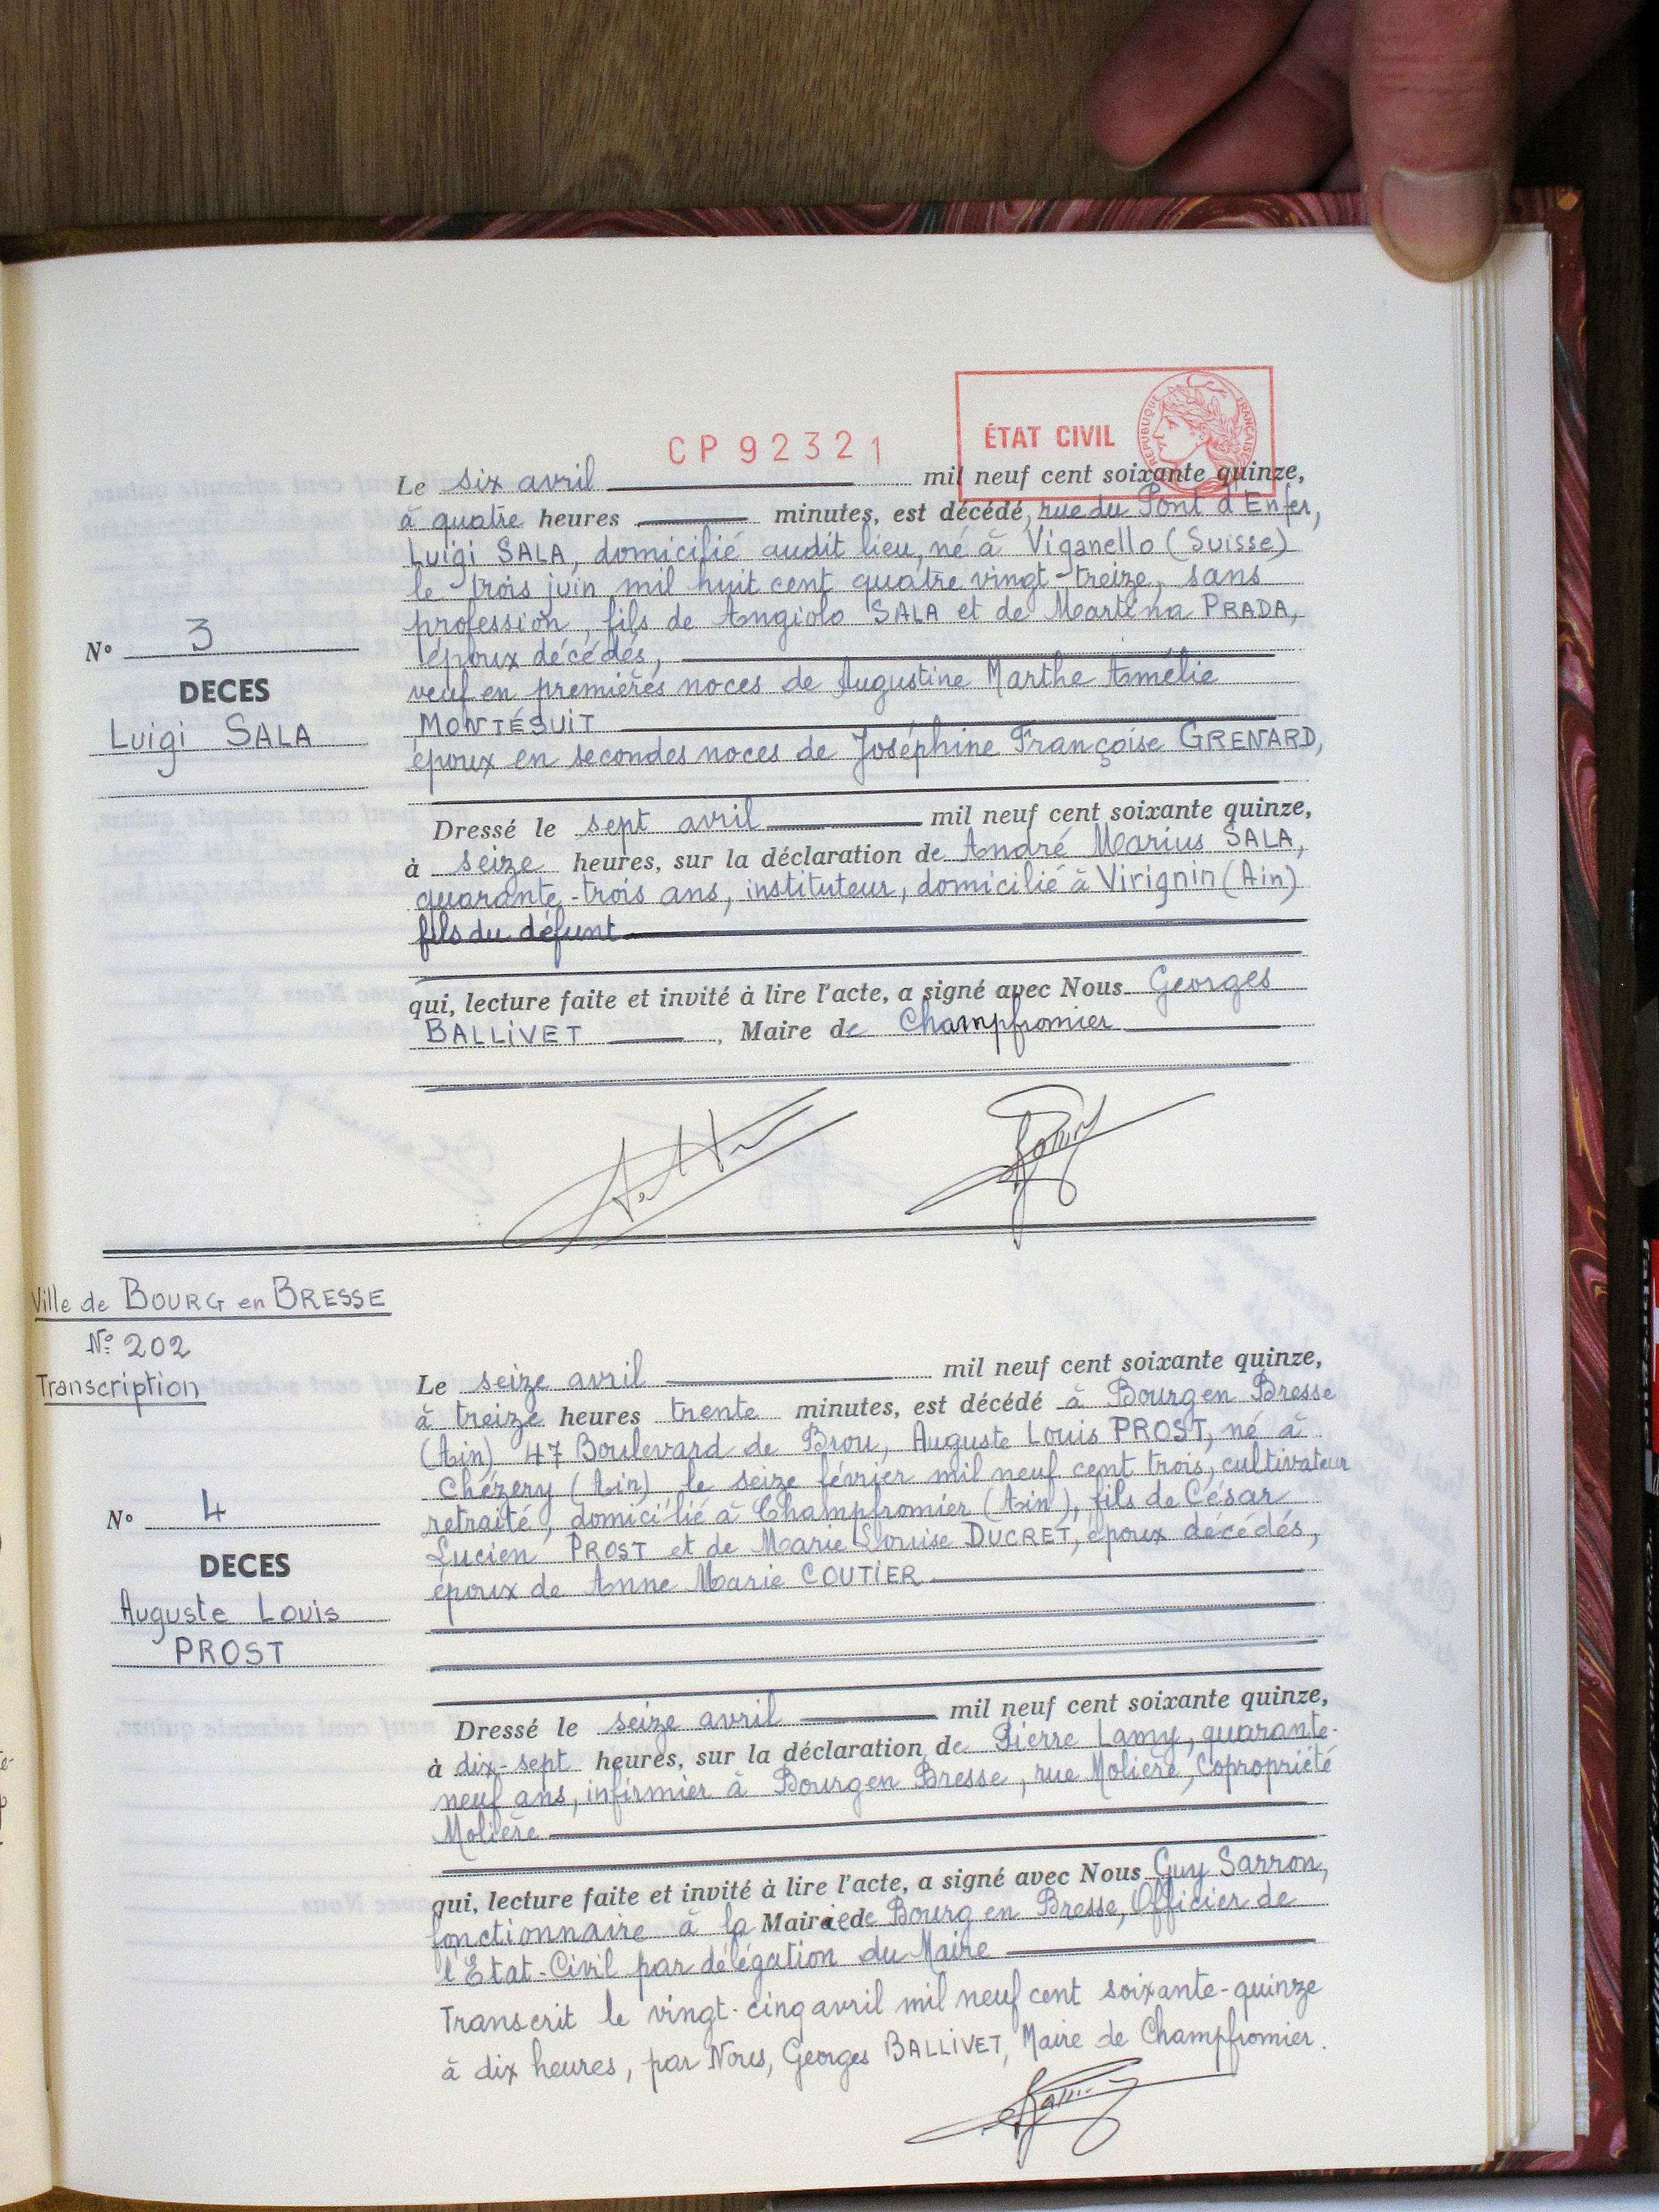 CP 92321
ÉTAT CIVIL
RÉPUBLIQUE FRANÇAISE
Le six avril mil neuf cent soixante quinze,
à quatre heures minutes, est décédé, rue du Pont d'Enfer,
Luigi SALA, domicilié audit lieu, né à Viganello (Suisse)
le trois juin mil huit cent quatre vingt-treize, sans
profession, fils de Angiolo SALA et de Martina PRADA,
époux décédés,
veuf en premières noces de Augustine Marthe Amélie
MONTÉSUIT
époux en secondes noces de Joséphine Françoise GRENARD,
N° 3
DECES
Luigi SALA
Dressé le sept avril mil neuf cent soixante quinze,
à seize heures, sur la déclaration de André Marius SALA,
quarante-trois ans, instituteur, domicilié à Virignin (Ain)
fils du défunt
qui, lecture faite et invité à lire l'acte, a signé avec Nous Georges
BALLIVET, Maire de Champfromier
Ville de BOURG en BRESSE
N° 202
Transcription
Le seize avril mil neuf cent soixante quinze,
à treize heures trente minutes, est décédé à Bourg en Bresse
(Ain) 47 Boulevard de Brou, Auguste Louis PROST, né à
Chézery (Ain) le seize février mil neuf cent trois, cultivateur
retraité, domicilié à Champfromier (Ain), fils de César
Lucien PROST et de Marie Louise DUCRET, époux décédés,
époux de Anne Marie COUTIER
N° 4
DECES
Auguste Louis
PROST
Dressé le seize avril mil neuf cent soixante quinze,
à dix-sept heures, sur la déclaration de Pierre Lamy, quarante-
neuf ans, infirmier à Bourg en Bresse, rue Molière, Copropriété
Molière
qui, lecture faite et invité à lire l'acte, a signé avec Nous Guy Sarron,
fonctionnaire à la Mairie de Bourg en Bresse, Officier de
l'Etat-Civil par délégation du Maire
Transcrit le vingt-cinq avril mil neuf cent soixante-quinze
à dix heures, par Nous, Georges BALLIVET, Maire de Champfromier.